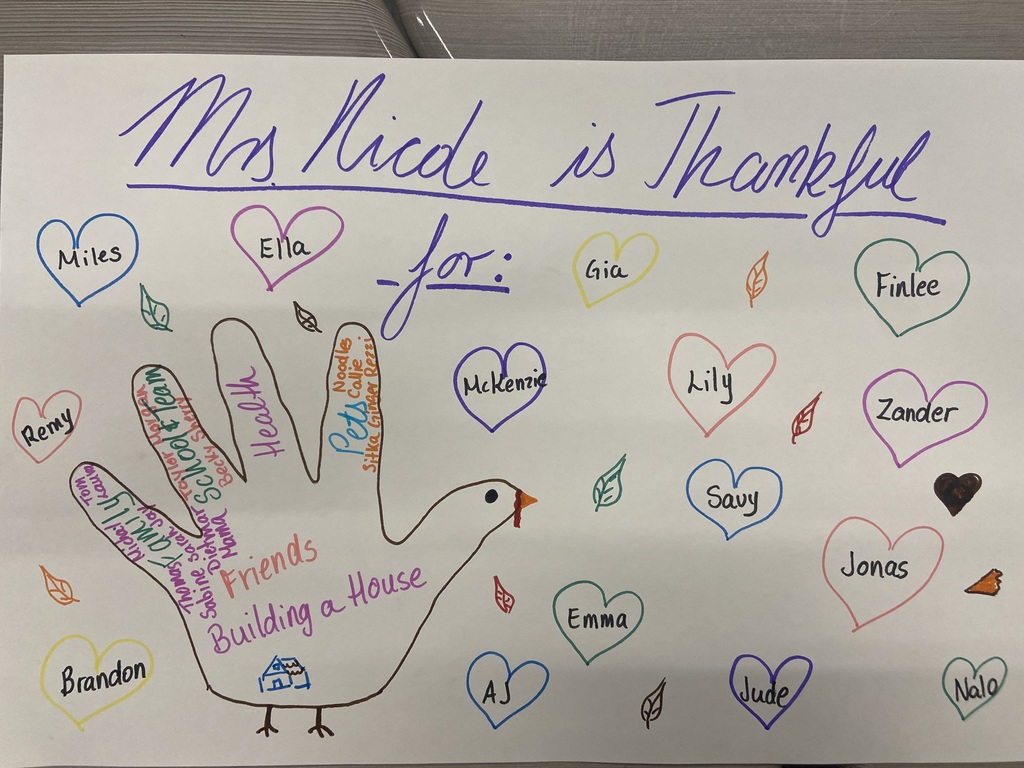 Mrs. Nicole is Thankful
for:
Miles
Ella
Gia
Finlee
McKenzie
Lily
Zander
Remy
Savy
Jonas
Emma
Brandon
AJ
Jude
Nala
Family
Tom
Laura
Michail
Jay
Thomas
Sarah
Sabine
Dietmar
Mama
School & Team
Taylor Morgan
Becky Sherry
Health
Pets
Noodles
Callie
Sitka Ginger Rezzi
Friends
Building a House